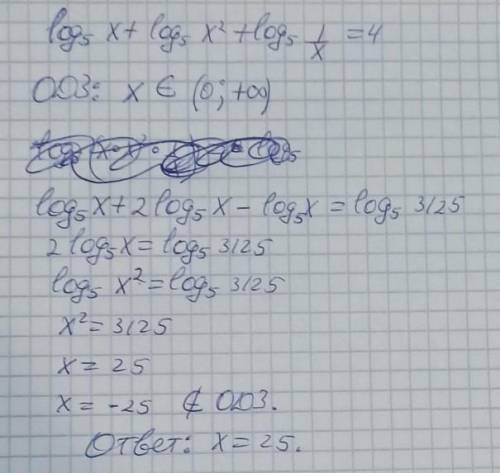 log₅ x + log₅ x² + log₅ 1/x = 4
ОДЗ: x ∈ (0; +∞)
log₅ x + 2 log₅ x - log₅ x = log₅ 3125
2 log₅ x = log₅ 3125
log₅ x² = log₅ 3125
x² = 3125
x = 25
x = -25 ∉ ОДЗ.
Ответ: x = 25.